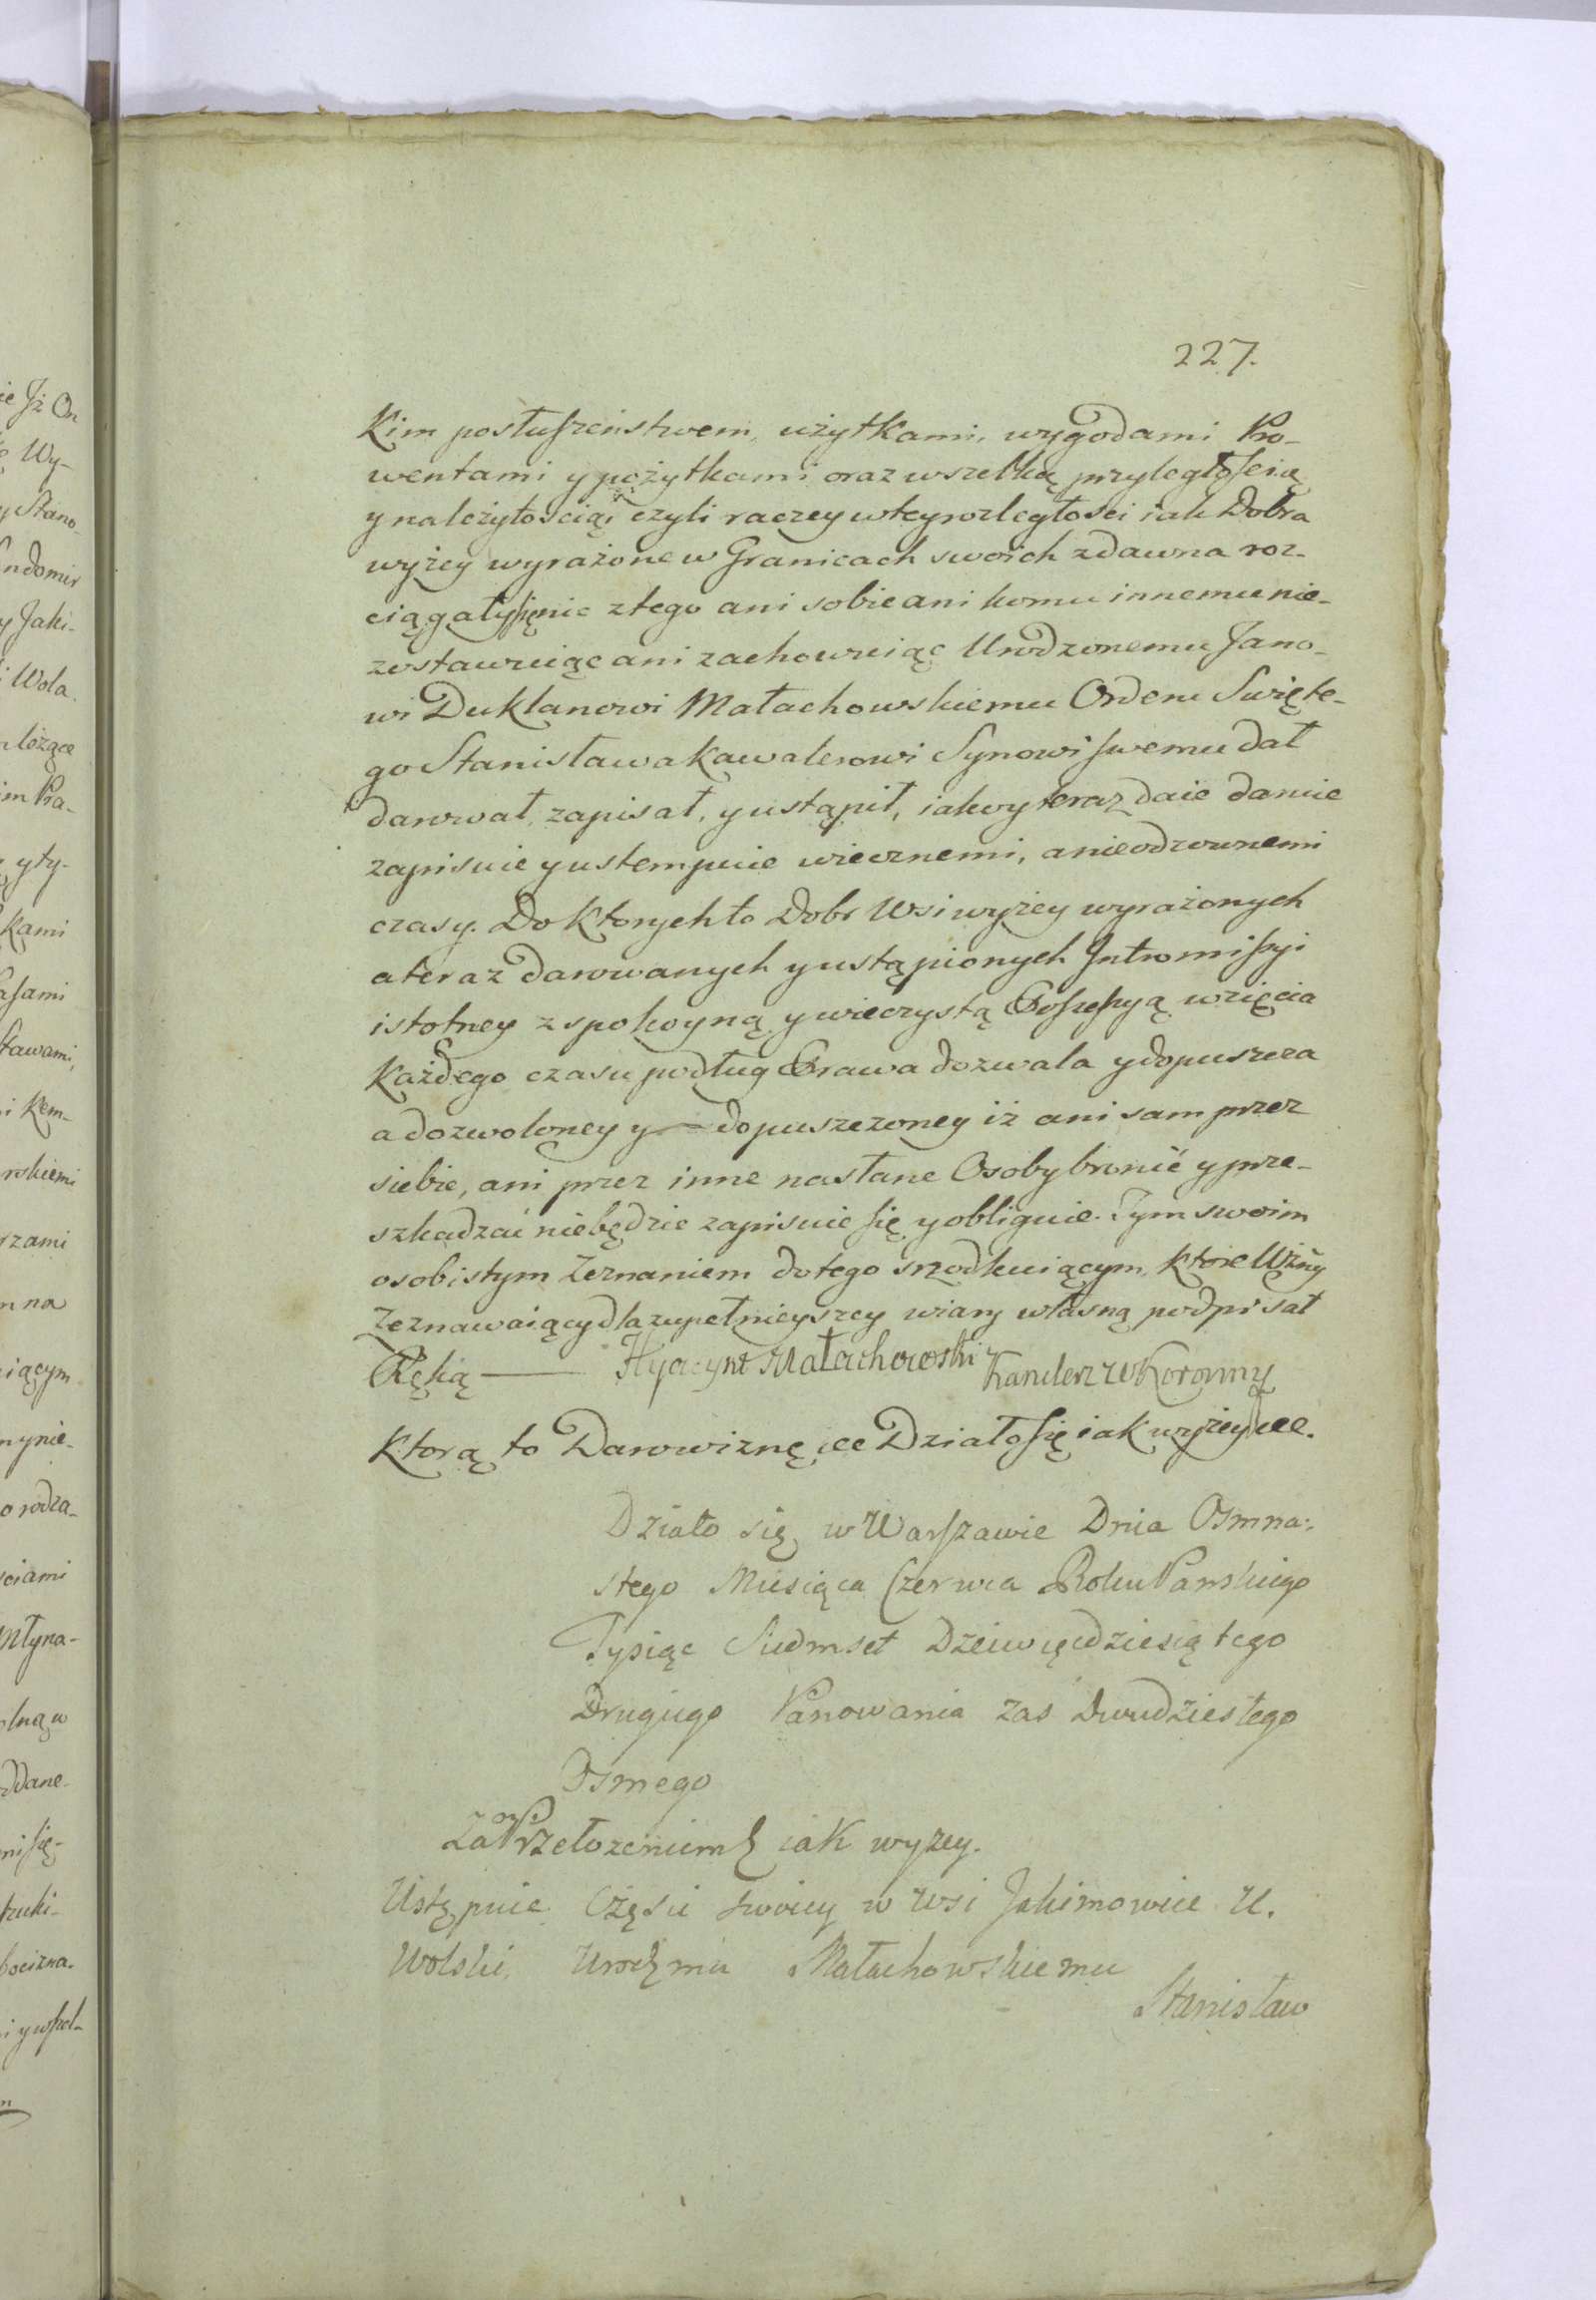 227.
Kim posłuszeństwem, użytkami, wygodami Pro-
wentami y pożytkami oraz wszelką przyległością
y należytością, czyli raczey wtey rozległości iak Dobra
wyżey wyrażone w Granicach swoich zdawna roz-
ciągały się nic ztego ani sobie ani komu innemu nie-
zostawuiąc ani zachowuiąc Urodzonemu Jano-
wi Duklanowi Małachowskiemu Orderu Święte-
go Stanisława Kawalerowi Synowi swemu dał
darował, zapisał, y ustąpił, iakoy teraz daie daruie
zapisuie y ustempuie wiecznemi, a nieodzownemi
czasy. Do Ktorych to Dobr Wsi wyżey wyrażonych
a teraz darowanych y ustąpionych Intromissyi
istotney z spokoyną y wieczystą Possessyą wzięcia
Każdego czasu podług Prawa dozwala y dopuszcza
a dozwoloney y dopuszczoney iż ani sam przez
siebie, ani przez inne nasłane Osoby bronić y prze-
szkadzać niebędzie zapisuie się y obliguie. Tym swoim
osobistym Zeznaniem do tego srzodkuiącym, Ktore Wżny
Zeznawaiący dla zupełnieyszey wiary własną podpisał
Ręką — Hyacynt Małachowski Kanclerz W Koronny
Ktorą to Darowiznę &c Działo się iak wyżey &c.
Działo się w Warszawie Dnia Osmna-
stego Miesiąca Czerwca Roku Panskiego
Tysiąc Siedmset Dziewięćdziesiątego
Drugiego Panowania zaś Dwudziestego
Osmego
Za Przełożeniem iak wyzey.
Ustępuie Części swoiey w Wsi Jakimowice U.
Wolski, Urodzmu Małachowskiemu
Stanisław